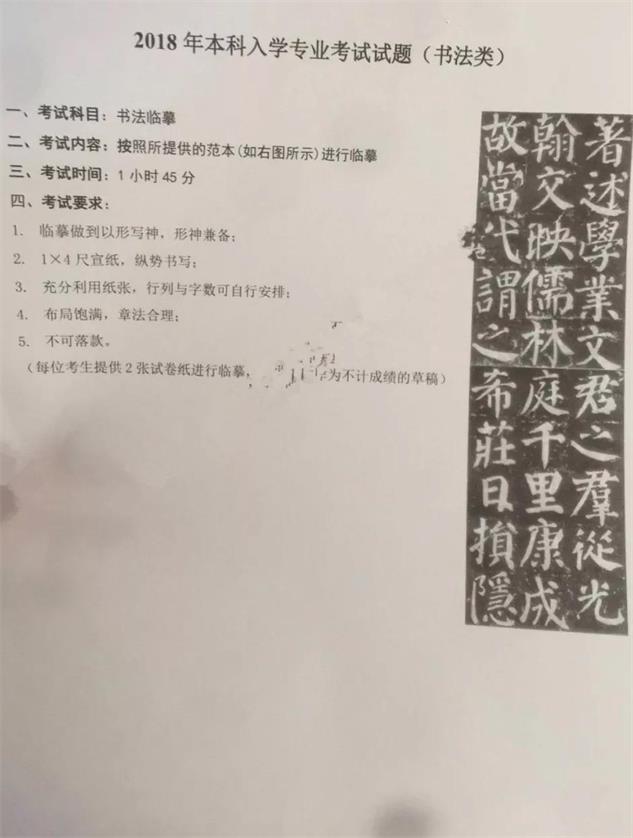 2018 年本科入学专业考试试题（书法类）
一、考试科目：书法临摹
二、考试内容：按照所提供的范本(如右图所示)进行临摹
三、考试时间：1 小时 45 分
四、考试要求：
1. 临摹做到以形写神，形神兼备；
2. 1×4 尺宣纸，纵势书写；
3. 充分利用纸张，行列与字数可自行安排；
4. 布局饱满，章法合理；
5. 不可落款。
（每位考生提供 2 张试卷纸进行临摹， 为不计成绩的草稿）
著述學業文
翰交映儒林
故當代謂之
君之羣從光
庭千里康成
希莊日損隱